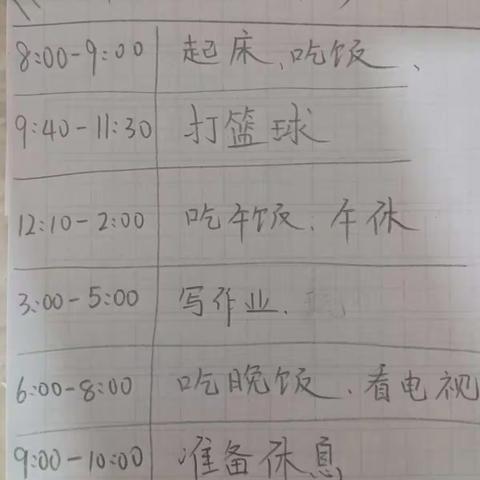 8:00-9:00 起床、吃饭、
9:40-11:30 打篮球
12:10-2:00 吃午饭、午休
3:00-5:00 写作业、
6:00-8:00 吃晚饭、看电视
9:00-10:00 准备休息